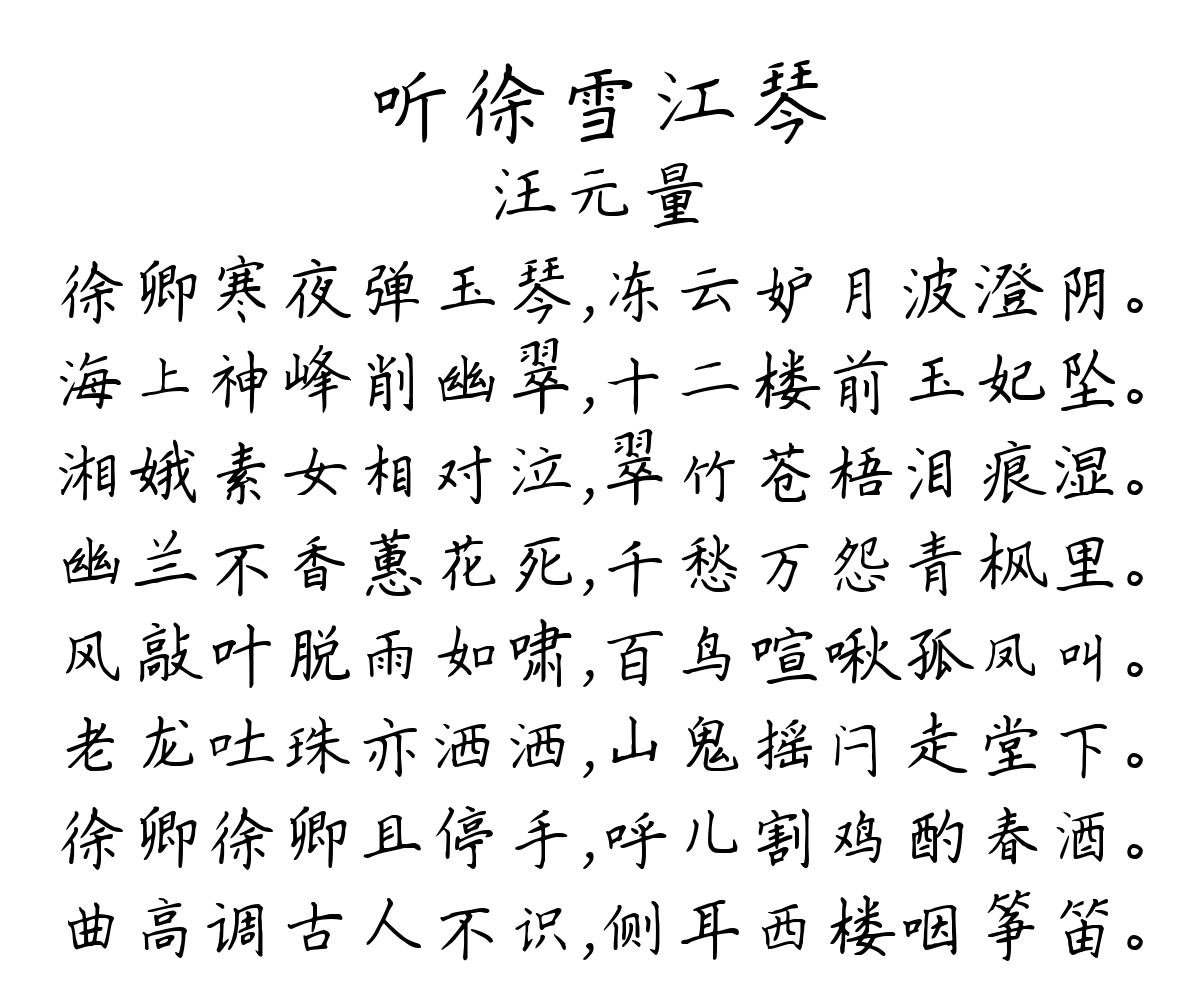 听徐雪江琴
汪元量
徐卿寒夜弹玉琴,冻云妒月波澄阴。
海上神峰削幽翠,十二楼前玉妃坠。
湘娥素女相对泣,翠竹苍梧泪痕湿。
幽兰不香蕙花死,千愁万怨青枫里。
风敲叶脱雨如啸,百鸟喧啾孤凤叫。
老龙吐珠亦洒洒,山鬼摇闩走堂下。
徐卿徐卿且停手,呼儿割鸡酌春酒。
曲高调古人不识,侧耳西楼咽筝笛。